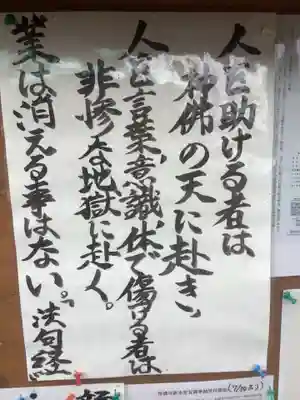 人を助ける者は
神佛の天に赴き、
人を言葉、意識、体で傷ける者は
非惨な地獄に赴く。
業は消える事はない。「法句経」